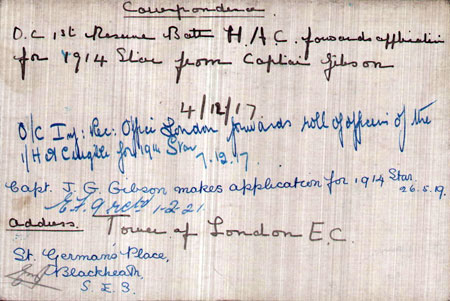 Correspondence.
O.C 1st Reserve Batn H.A.C. forwards application
for 1914 Star from Captain Gibson
4/12/17
O/C Inf: Rec: Office London forwards roll of officers of the
1/H A C eligible for 1914 Star 7.12.17
Capt. J. G. Gibson makes application for 1914 Star
26.5.19.
1-2-21.
Address. Tower of London E.C.
St. German's Place,
Blackheath.
S.E.3.